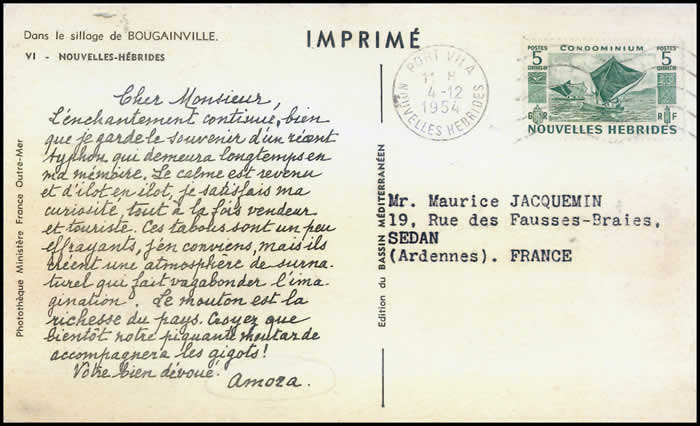 Dans le sillage de BOUGAINVILLE.
VI - NOUVELLES-HÉBRIDES
IMPRIMÉ
Cher Monsieur,
L'enchantement continue, bien
que je garde le souvenir d'un récent
typhon qui demeura longtemps en
ma mémoire. Le calme est revenu
et d'îlot en îlot, je satisfais ma
curiosité, tout à la fois vendeur
et touriste. Ces tabous sont un peu
effrayants, j'en conviens, mais ils
créent une atmosphère de surna-
turel qui fait vagabonder l'ima-
gination. Le mouton est la
richesse du pays. Croyez que
bientôt notre piquante moutarde
accompagnera les gigots!
Votre bien dévoué.
Amora.
Photothèque Ministère France Outre-Mer
Edition du BASSIN MÉDITERRANÉEN
PORT VILA
11 H
4-12
1954
NOUVELLES HEBRIDES
POSTES
5
CENTIMES OR
CONDOMINIUM
POSTES
5
CENTIMES OR
G R
R F
NOUVELLES HEBRIDES
Mr. Maurice JACQUEMIN
19, Rue des Fausses-Braies,
SEDAN
(Ardennes). FRANCE